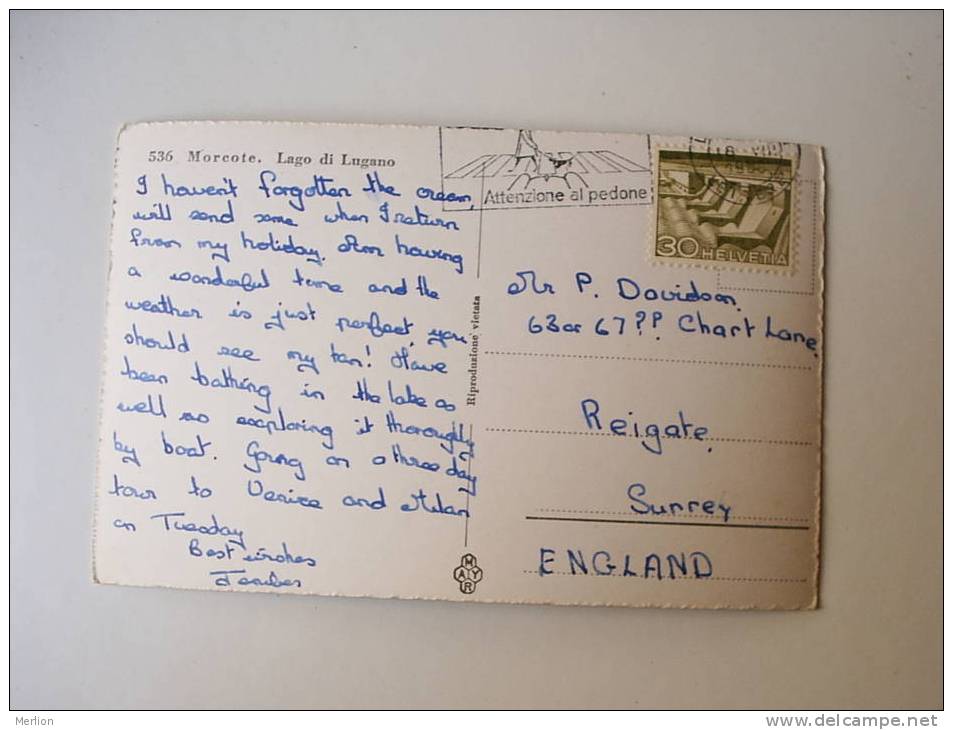 536 Morcote. Lago di Lugano
I haven't forgotten the cream,
will send some when I return
from my holiday. Am having
a wonderful time and the
weather is just perfect, you
should see my tan! Have
been bathing in the lake as
well as exploring it thoroughly
by boat. Going on a three day
tour to Venice and Milan
on Tuesday
Best wishes
Attenzione al pedone
30 HELVETIA
Riproduzione vietata
MAYR
Mr P. Davidson,
63 or 67?? Chart Lane,
Reigate,
Surrey
ENGLAND
Merlion
www.delcampe.net